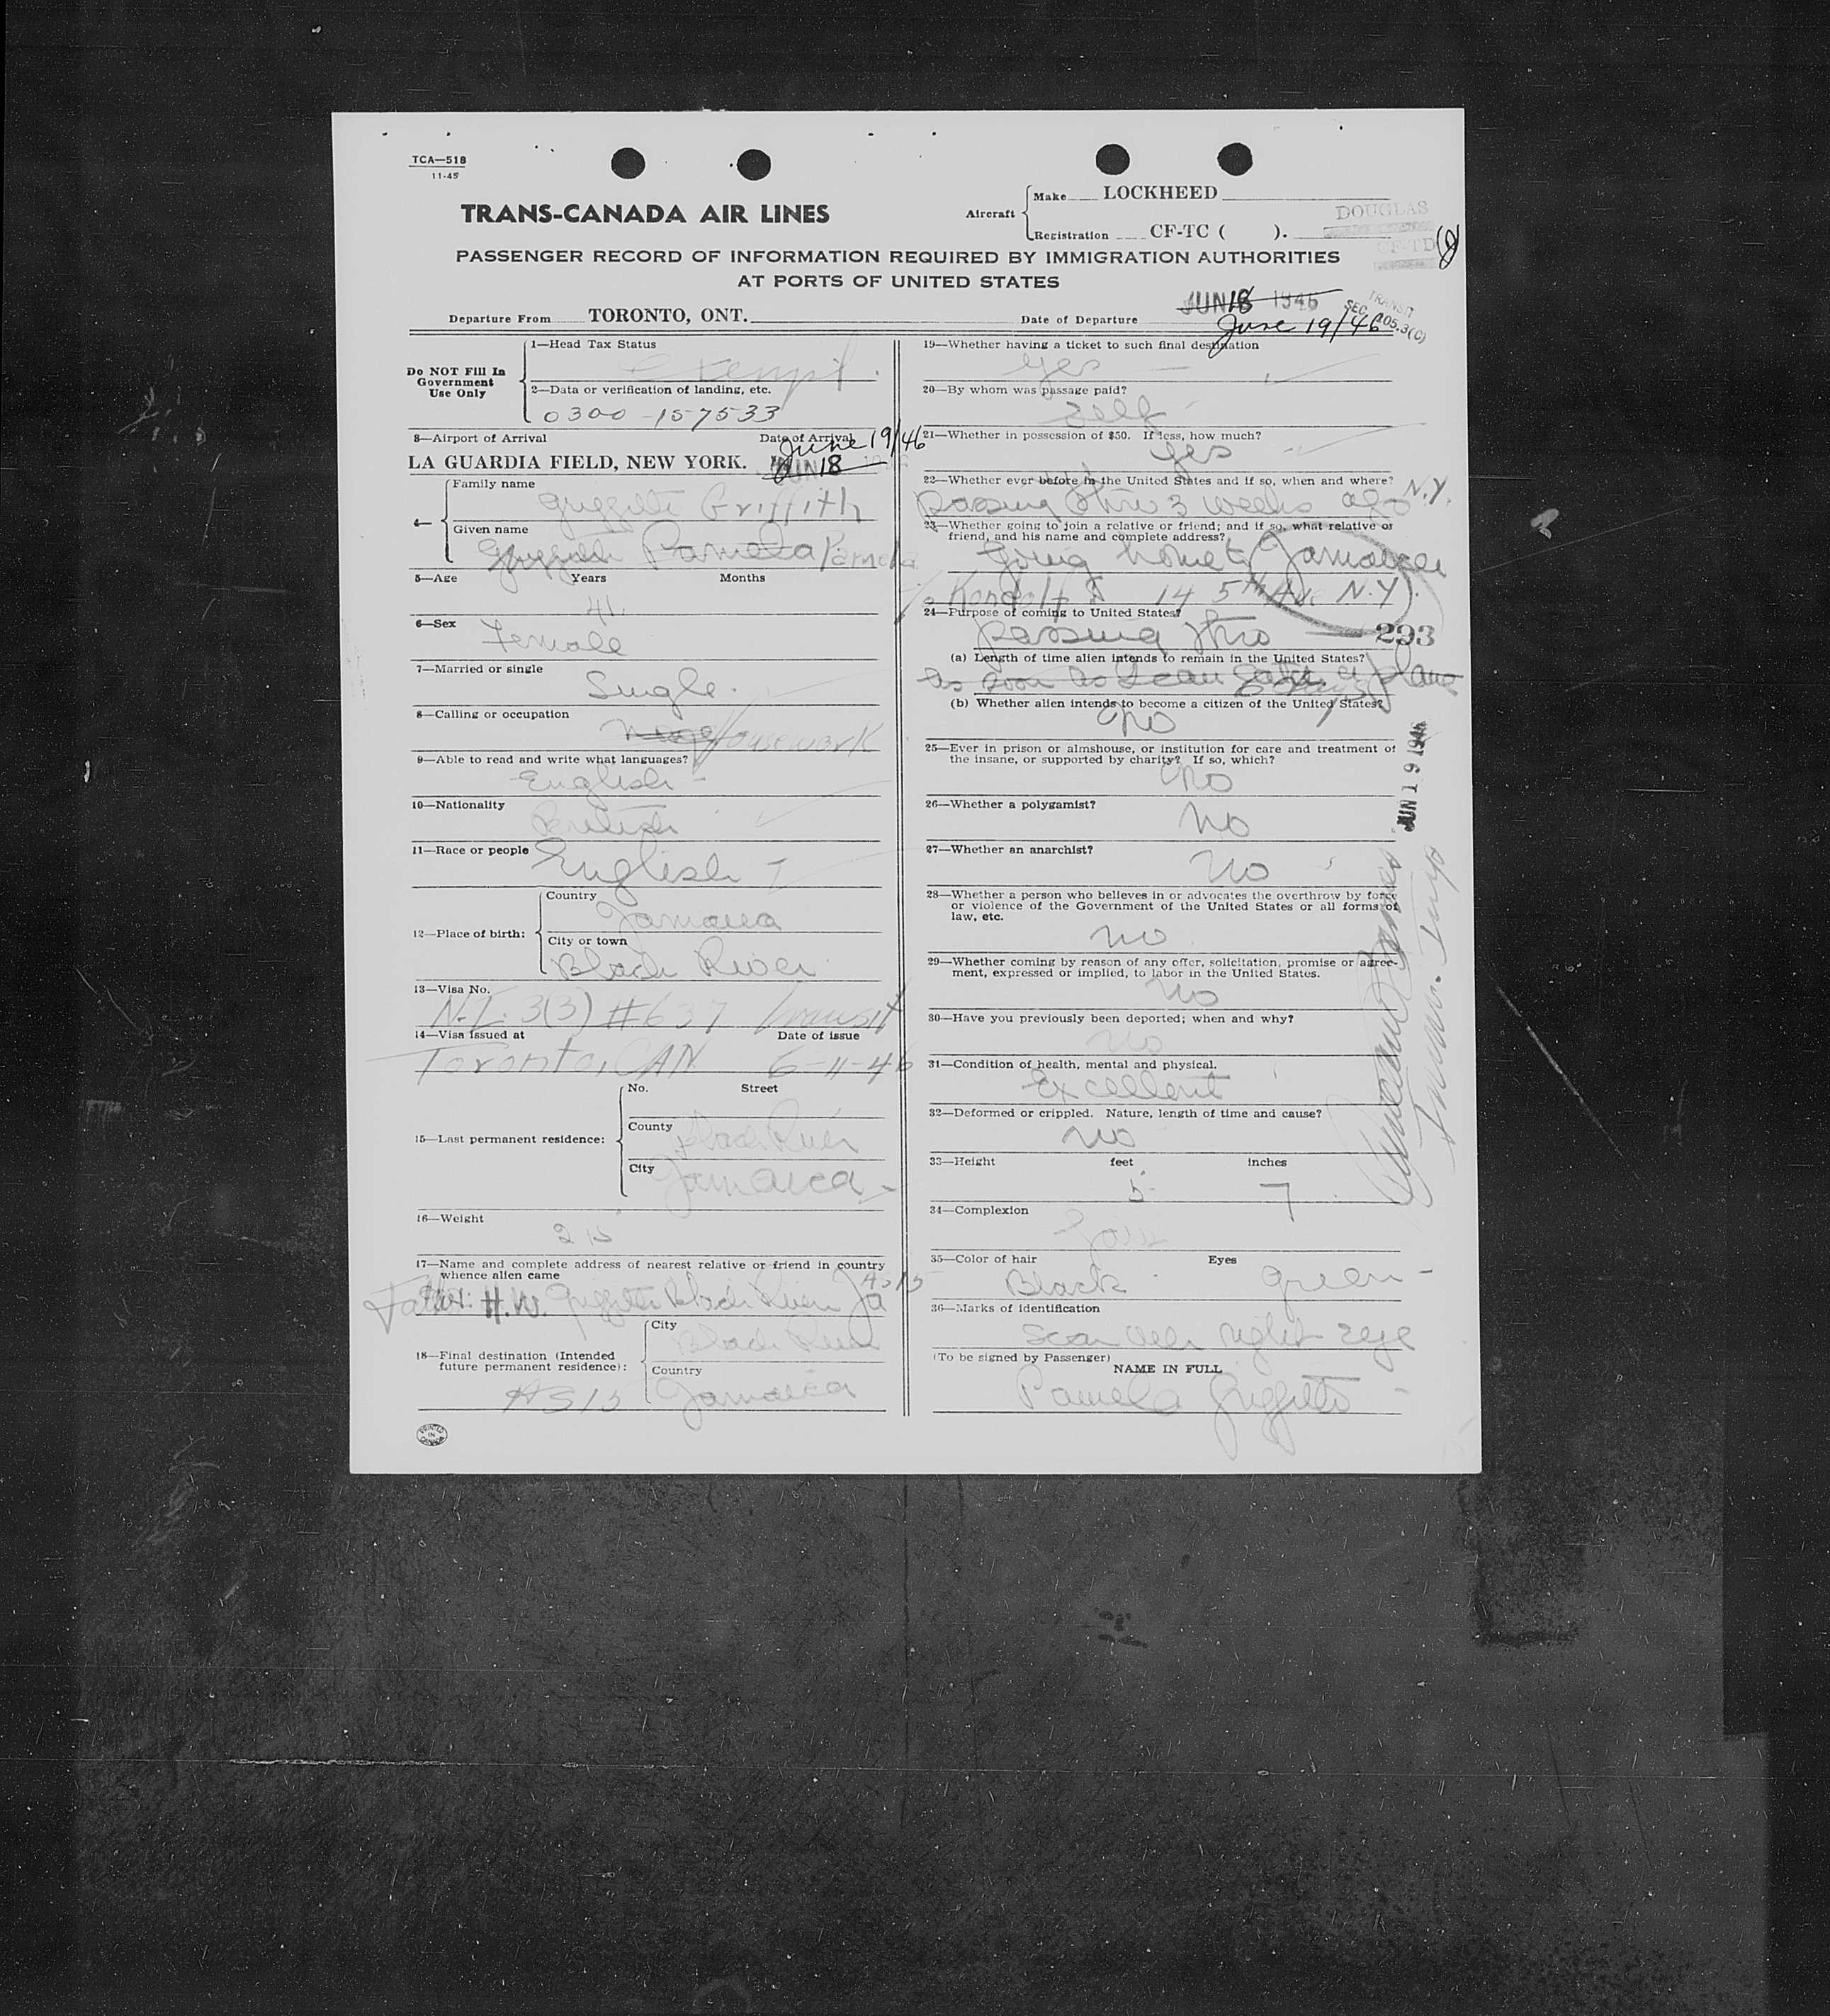 TCA—518
11-45
TRANS-CANADA AIR LINES
Aircraft
Make LOCKHEED
DOUGLAS
Registration CF-TC ( ).
CF-TD
PASSENGER RECORD OF INFORMATION REQUIRED BY IMMIGRATION AUTHORITIES
AT PORTS OF UNITED STATES
Departure From TORONTO, ONT.
Date of Departure JUN 18 1946
June 19/46
TRANSIT
SEC. 105.3(C)
Do NOT Fill In
Government
Use Only
1—Head Tax Status
Exempt.
2—Data or verification of landing, etc.
0300-157533
3—Airport of Arrival Date of Arrival
June 19/46
LA GUARDIA FIELD, NEW YORK. JUN 18
4—
Family name
Griffith Griffith
Given name
Griffith Pamela Pamela
5—Age Years Months
41
6—Sex
Female
7—Married or single
Single.
8—Calling or occupation
Housework
9—Able to read and write what languages?
English
10—Nationality
British
11—Race or people
English
12—Place of birth:
Country
Jamaica
City or town
Black River
13—Visa No.
N.I. 3(3) #637 Transit
14—Visa issued at Date of issue
Toronto, CAN 6-11-46
15—Last permanent residence:
No. Street
County
Black River
City
Jamaica
16—Weight
215
17—Name and complete address of nearest relative or friend in country
whence alien came
Father: H.W. Griffith Black River Ja
18—Final destination (Intended
future permanent residence):
City
Black River
Country
Jamaica
PRINTED
IN
CANADA
19—Whether having a ticket to such final destination
Yes
20—By whom was passage paid?
Self
21—Whether in possession of $50. If less, how much?
Yes
22—Whether ever before in the United States and if so, when and where?
passing thro 3 weeks ago N.Y.
23—Whether going to join a relative or friend; and if so, what relative or
friend, and his name and complete address?
Going home to Jamaica
14 5th Ave N.Y.
24—Purpose of coming to United States?
passing thro
293
(a) Length of time alien intends to remain in the United States?
as soon as I can catch a plane
days
(b) Whether alien intends to become a citizen of the United States?
No
25—Ever in prison or almshouse, or institution for care and treatment of
the insane, or supported by charity? If so, which?
No
26—Whether a polygamist?
No
27—Whether an anarchist?
No
28—Whether a person who believes in or advocates the overthrow by force
or violence of the Government of the United States or all forms of
law, etc.
No
29—Whether coming by reason of any offer, solicitation, promise or agree-
ment, expressed or implied, to labor in the United States.
No
30—Have you previously been deported; when and why?
No
31—Condition of health, mental and physical.
Excellent
32—Deformed or crippled. Nature, length of time and cause?
No
33—Height feet inches
5 7
34—Complexion
Fair
35—Color of hair Eyes
Black Green
36—Marks of identification
Scar over right eye
(To be signed by Passenger)
NAME IN FULL
Pamela Griffith
JUN 19 1946
Immig. Insp